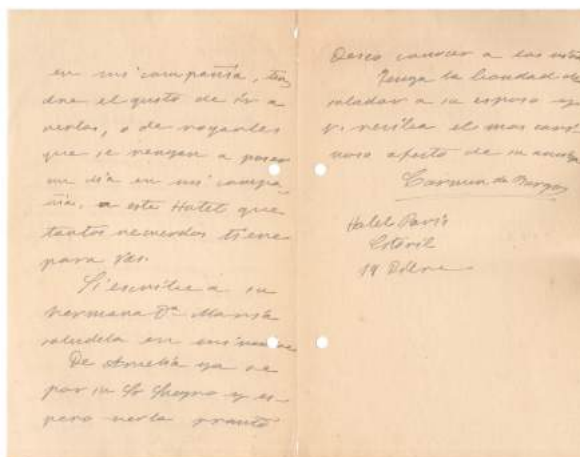 en mi compañía, ten
dre el gusto de ir a
verlos, o de rogarles
que se vengan a pasar
un dia en mi compa
ñia, a este Hotel que
tantos recuerdos tiene
para Vds.
Si escribe a su
hermana Dª Maria
saludela en mi nombre
De Amelia ya se
por su Sr Suegro y es-
pero verla pronto
Deseo conocer a las
Tenga la bondad de
saludar a su esposo y
V. reciba el mas cari
ñoso afecto de su amiga
Carmen de Burgos
Hotel Paris
Estoril
14 Dibre